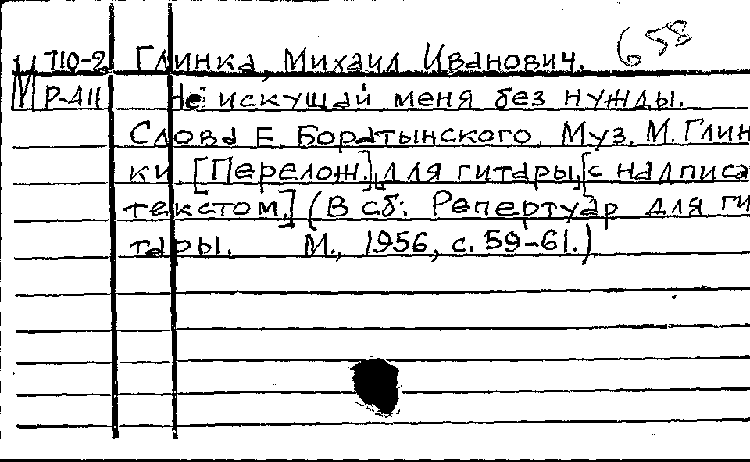 М 710-2 Глинка, Михаил Иванович. 658
М Р-411 Не искушай меня без нужды.
Слова Е. Боратынского. Муз. М. Глин
ки. [Перелож.] для гитары [с надписа
текстом.] (В сб: Репертуар для ги
тары. М., 1956, с. 59-61.)